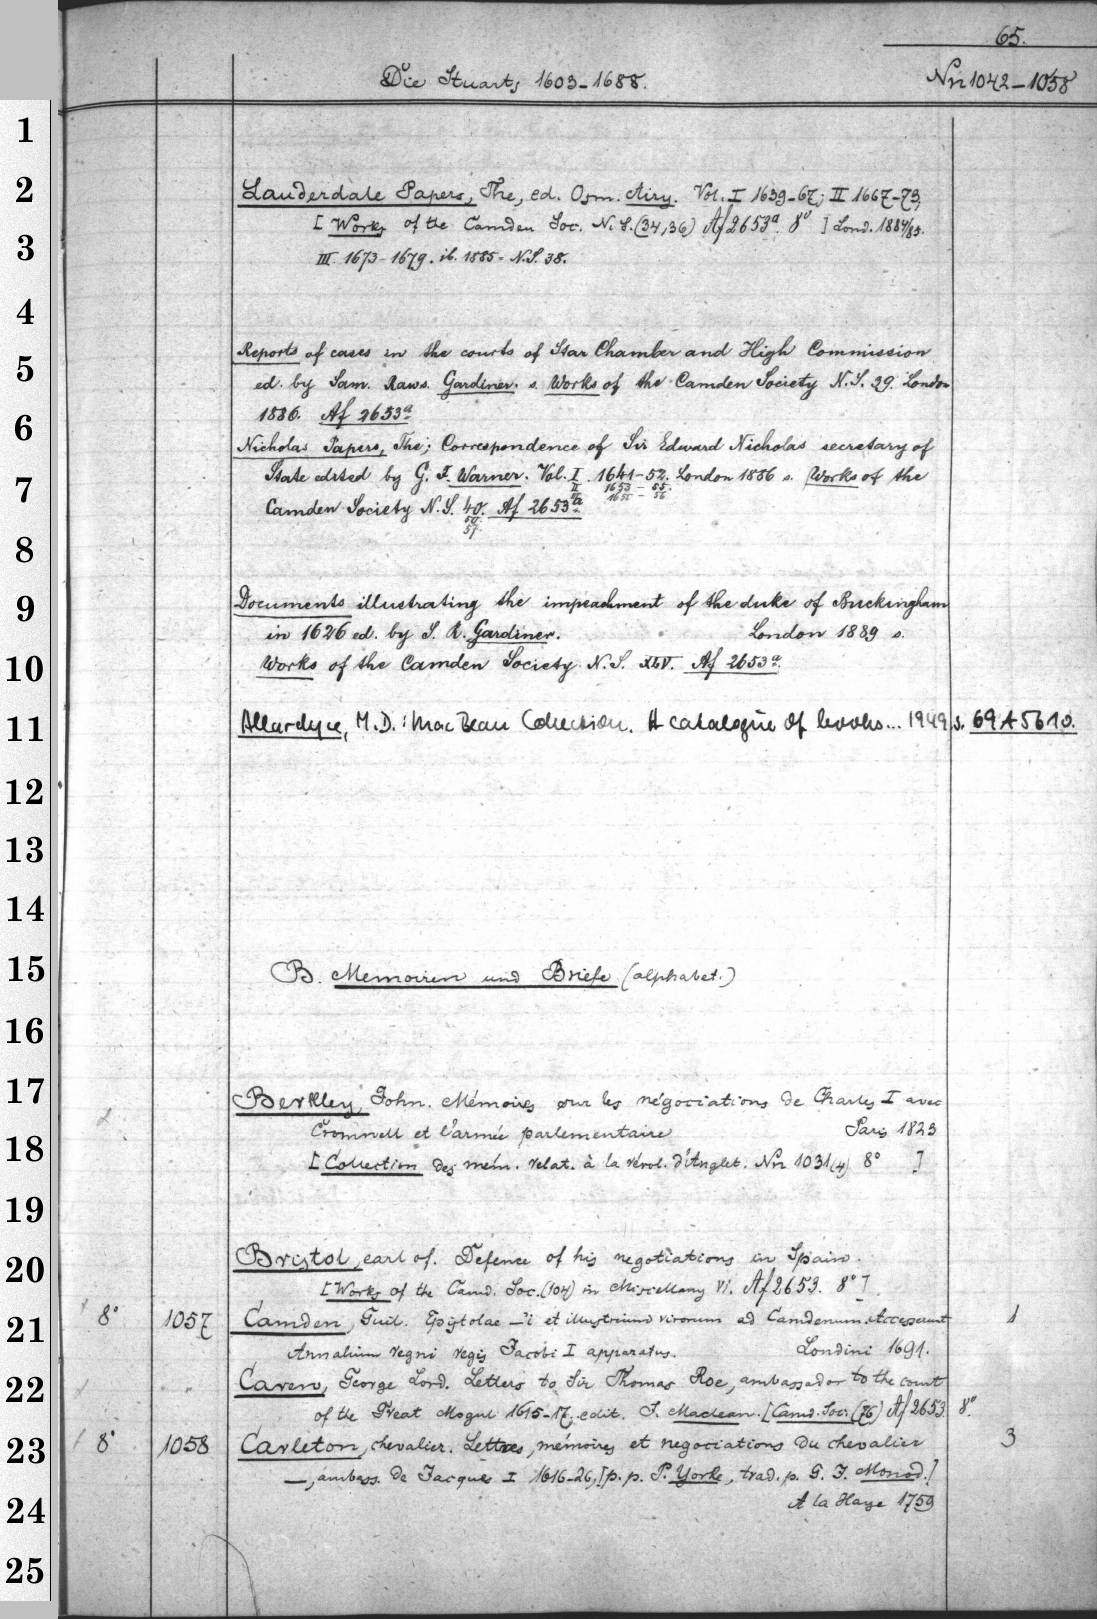 65.
Die Stuarts 1603-1688.
Nrı 1042-1058
1
2
3
4
5
6
7
8
9
10
11
12
13
14
15
16
17
18
19
20
21
22
23
24
25
Lauderdale Papers, The, ed. Osm. Airy. Vol. I 1639-67; II 1667-73,
[Works of the Camden Soc. N. S. (34,36) Af 2653ª. 8° ] Lond. 1884/85.
III. 1673-1679. ib. 1885 = N.S. 38.
Reports of cases in the courts of Star Chamber and High Commission
ed. by Sam. Raws. Gardiner. s. Works of the Camden Society N.S. 39. London
1886. Af 2653ª
Nicholas Papers, The; Correspondence of Sir Edward Nicholas secretary of
State edited by G. F. Warner. Vol. I. 1641-52. London 1886 s. Works of the
II 1653-55.
III 1655-56
Camden Society N.S. 40. Af 2653ª
50.
57.
Documents illustrating the impeachment of the duke of Buckingham
in 1626 ed. by S. R. Gardiner. London 1889 s.
Works of the Camden Society N.S. XLV. Af 2653ª.
Allardyce, M.D.: Mac Bean Collection. A catalogue of books... 1949 s. 69 A 5610.
B. Memoiren und Briefe (alphabet.)
Berkley, John. Mémoires sur les négociations de Charles I avec
Cromwell et l'armée parlementaire Paris 1823
[Collection des mém. relat. à la révol. d'Anglet. Nrı 1031(4) 8° ]
Bristol, earl of. Defence of his negotiations in Spain.
[Works of the Camd. Soc. (104) in Miscellany VI. Af 2653. 8° ]
8° 1057 Camden, Guil. Epistolae —i et illustrium virorum ad Camdenum. Accesserunt 1
Annalium regni regis Jacobi I apparatus. Londini 1691.
Carew, George Lord. Letters to Sir Thomas Roe, ambassador to the court
of the Great Mogul 1615-17. edit. J. Maclean. [Camd. Soc. (76) Af 2653. 8°
8° 1058 Carleton, chevalier. Lettres, mémoires et negociations du chevalier 3
—, ambass. de Jacques I 1616-26, [p. p. P. Yorke, trad. p. G. J. Monod.]
A la Haye 1759